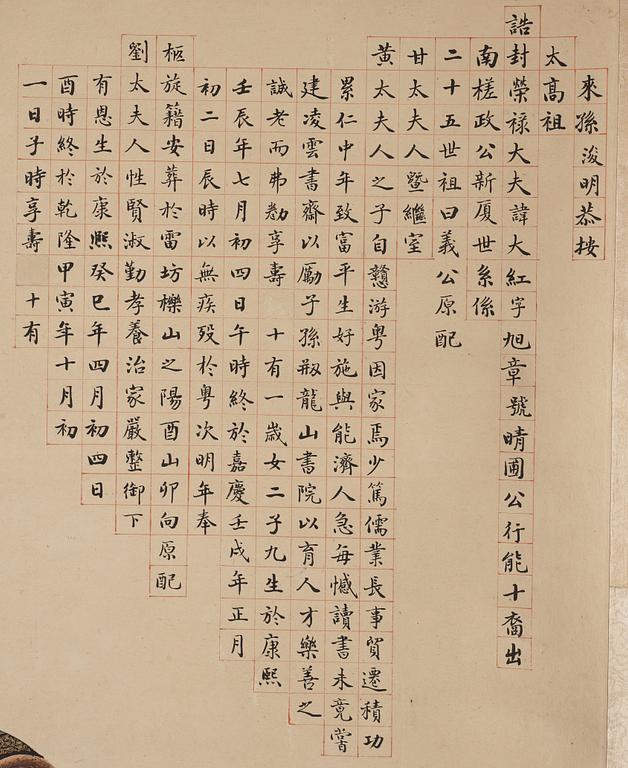 來孫浚明恭按
太高祖
誥封榮祿大夫諱大紅字旭章號晴圃公行能十裔出
南槎政公新厦世系係
二十五世祖曰義公原配
甘太夫人暨繼室
黃太夫人之子自戇游粵因家焉少篤儒業長事貿遷積功
累仁中年致富平生好施與能濟人急每憾讀書未竟嘗
建凌雲書齋以勵子孫剏龍山書院以育人才樂善之
誠老而弗勌享壽 十有一歲女二子九生於康熙
壬辰年七月初四日午時終於嘉慶壬戌年正月
初二日辰時以無疾歿於粵次明年奉
柩旋籍安葬於雷坊櫟山之陽酉山卯向原配
劉太夫人性賢淑勤孝養治家嚴整御下
有恩生於康熙癸巳年四月初四日
酉時終於乾隆甲寅年十月初
一日子時享壽 十有